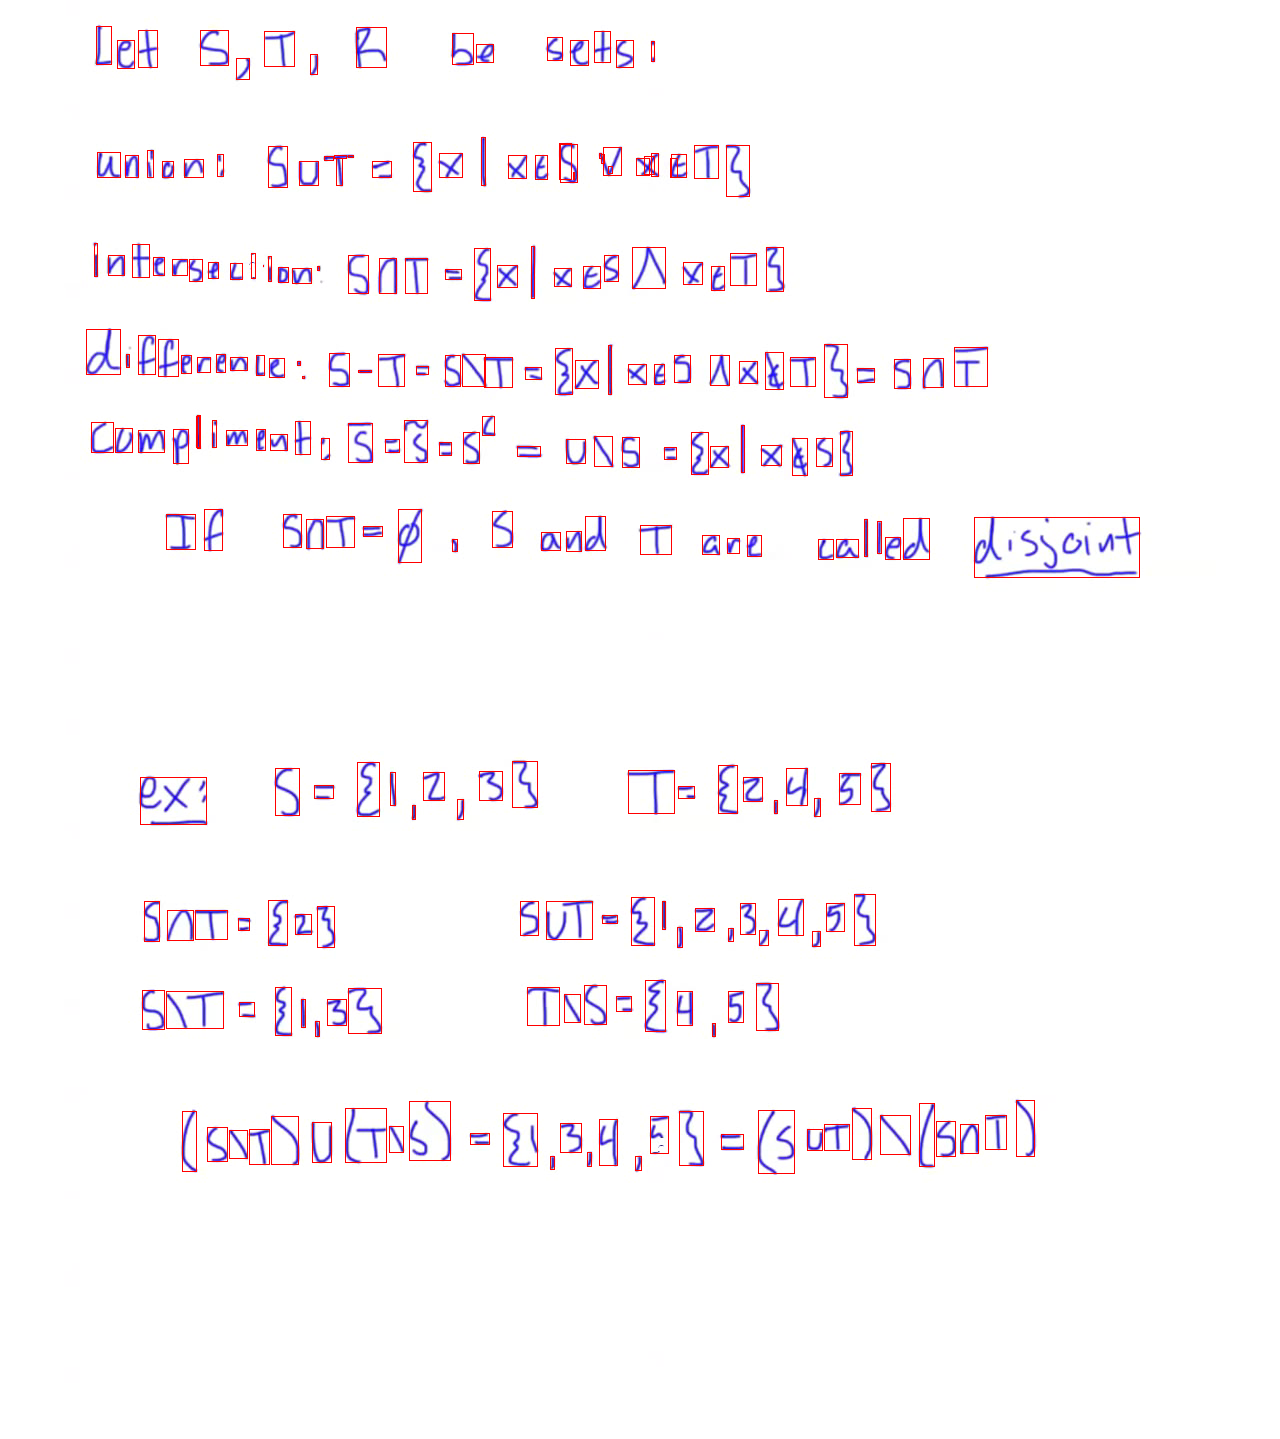 Let S, T, R be sets:
union: S∪T = {x | x∈S ∨ x∈T}
intersection: S∩T = {x | x∈S ∧ x∈T}
difference: S-T = S\T = {x | x∈S ∧ x∉T} = S∩T̅
compliment: S̅ = S̃ = Sᶜ = U\S = {x | x∉S}
If S∩T = ∅, S and T are called disjoint
ex: S = {1, 2, 3} T = {2, 4, 5}
S∩T = {2} S∪T = {1, 2, 3, 4, 5}
S\T = {1, 3} T\S = {4, 5}
(S\T) ∪ (T\S) = {1, 3, 4, 5} = (S∪T) \ (S∩T)